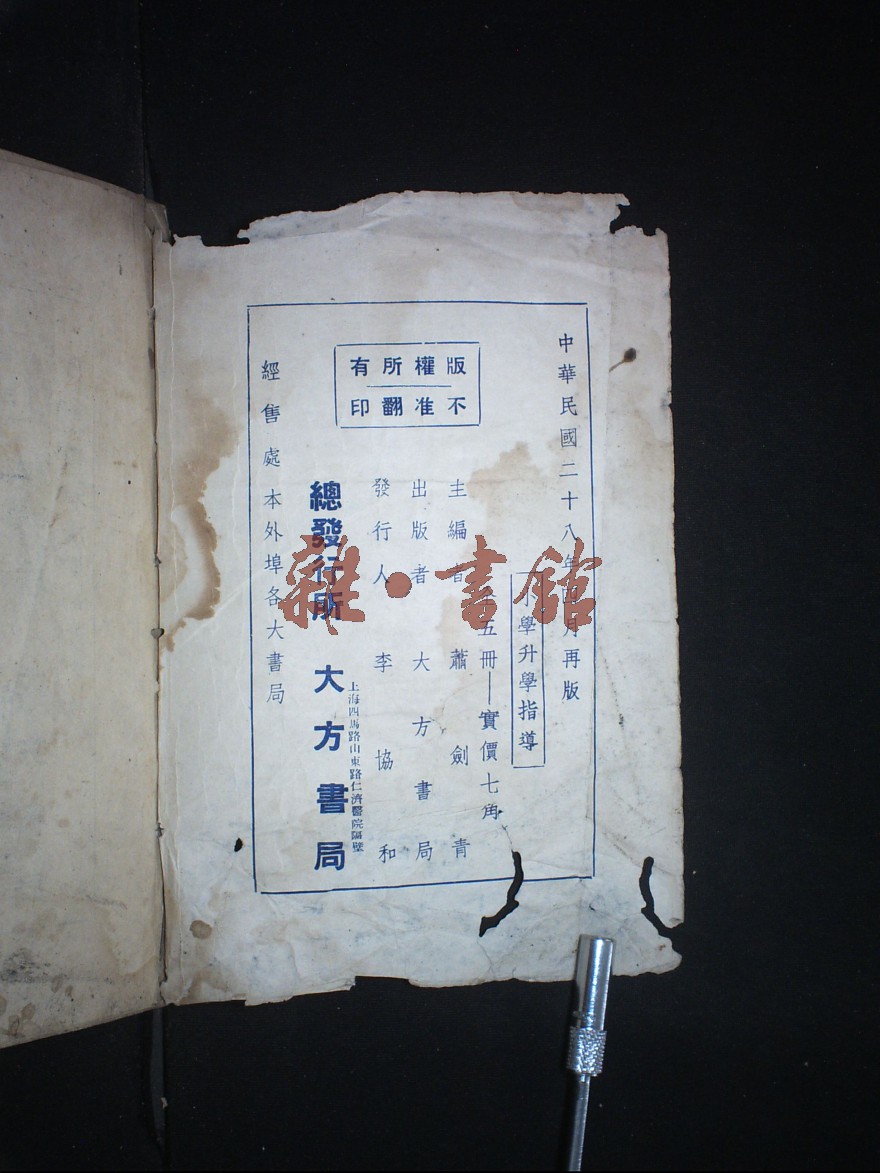 中華民國二十八年四月再版
小學升學指導
五冊——實價七角
主編者 蕭劍青
出版者 大方書局
發行人 李協和
版權所有
不准翻印
上海四馬路山東路仁濟醫院隔壁
總發行所 大方書局
經售處本外埠各大書局
雜·書館